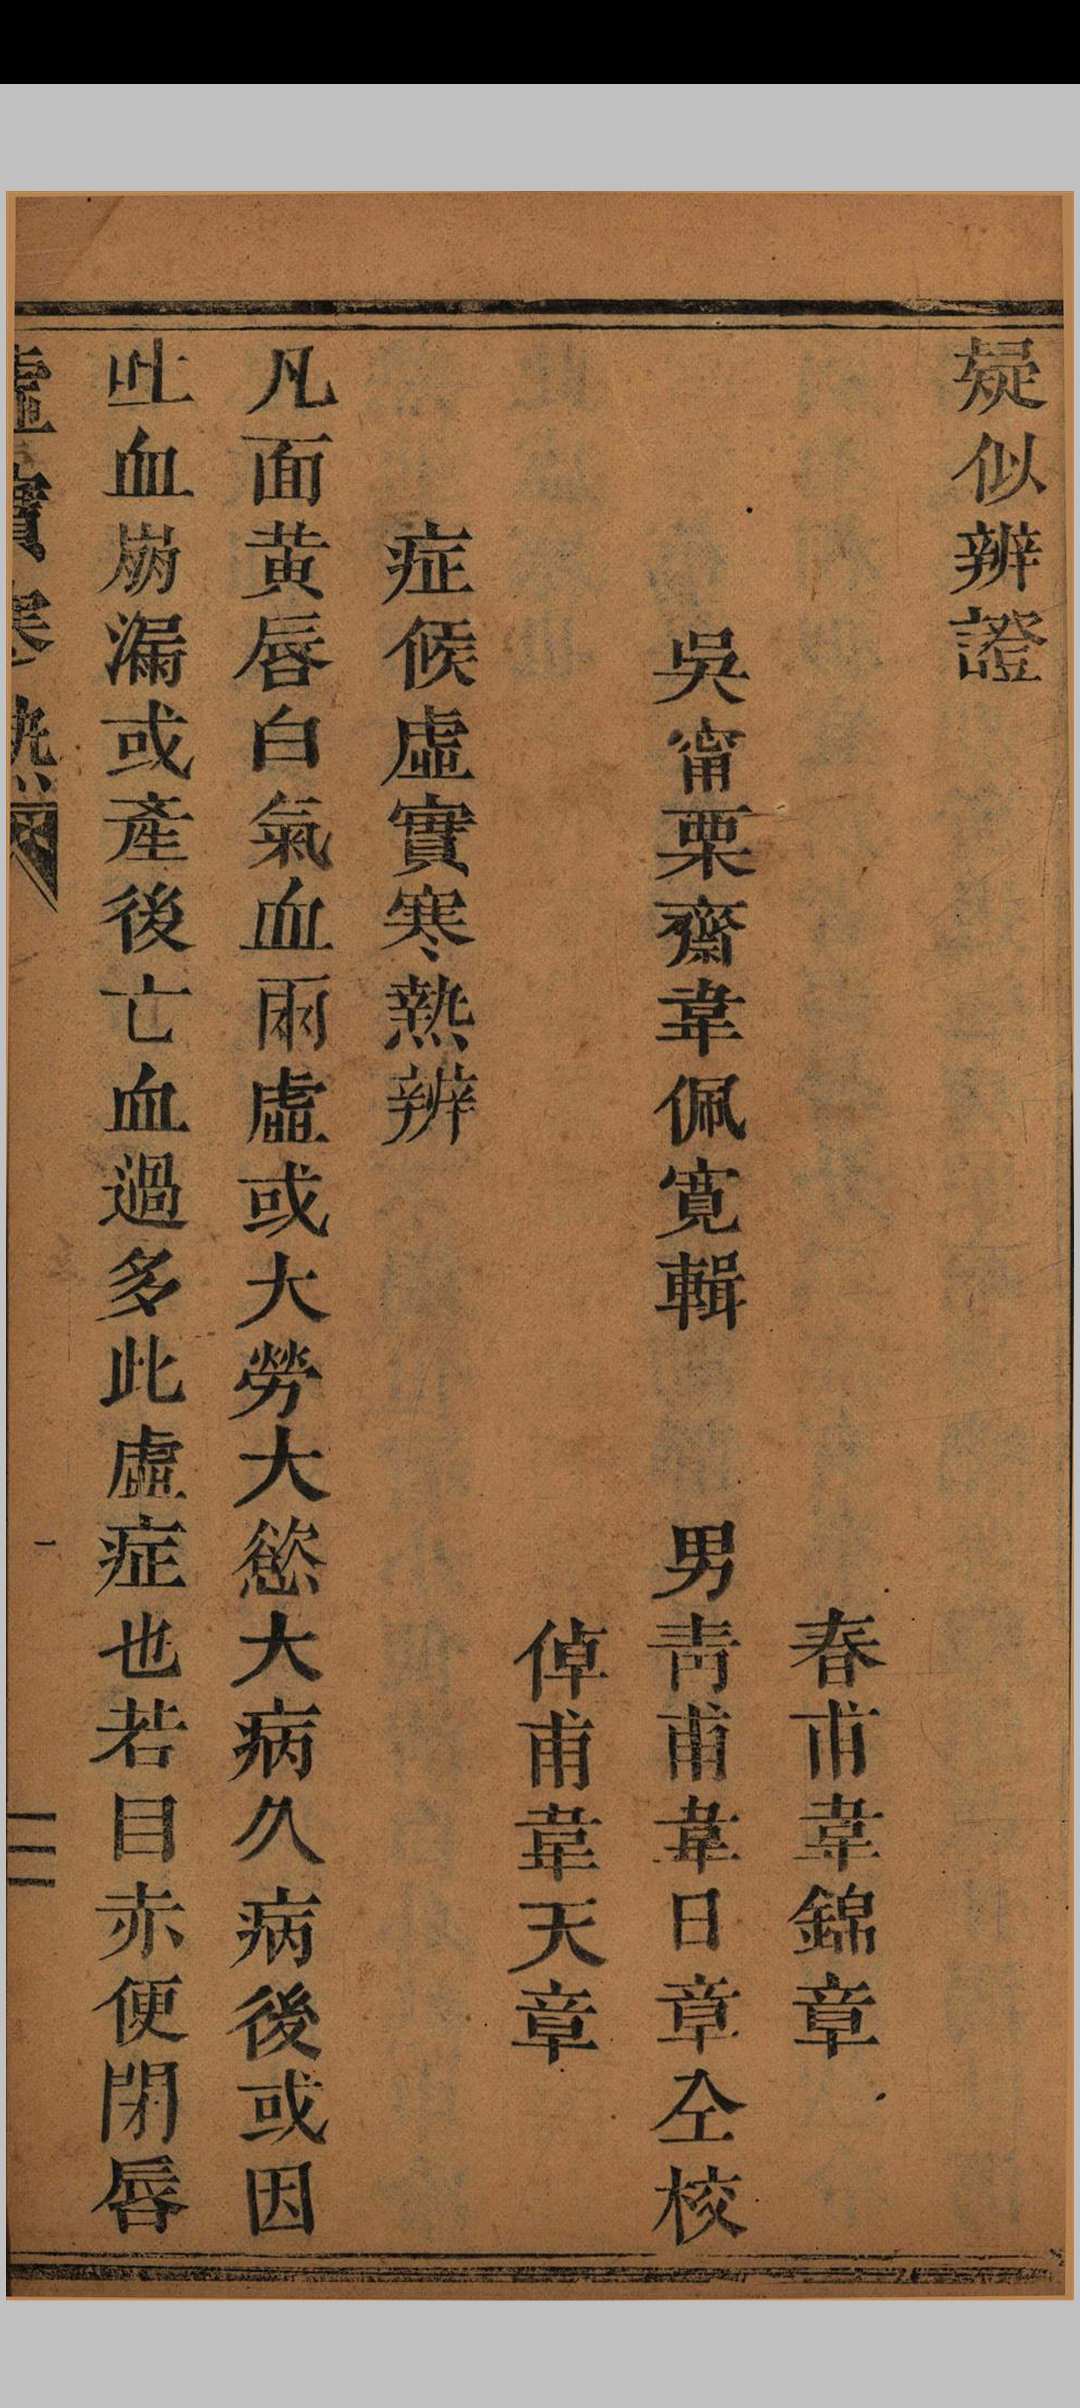 疑似辨證
春甫韋錦章
吳甯栗齋韋佩寬輯 男青甫韋日章仝校
倬甫韋天章
症候虛實寒熱辨
凡面黃唇白氣血兩虛或大勞大慾大病久病後或因
吐血崩漏或產後亡血過多此虛症也若目赤便閉唇
虛實寒熱
一
三